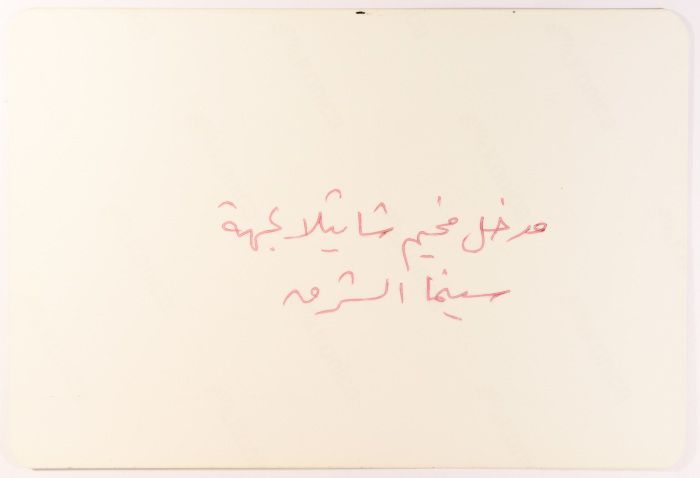 مدخل مخيم شاتيلا بجهة
سينما الشرق